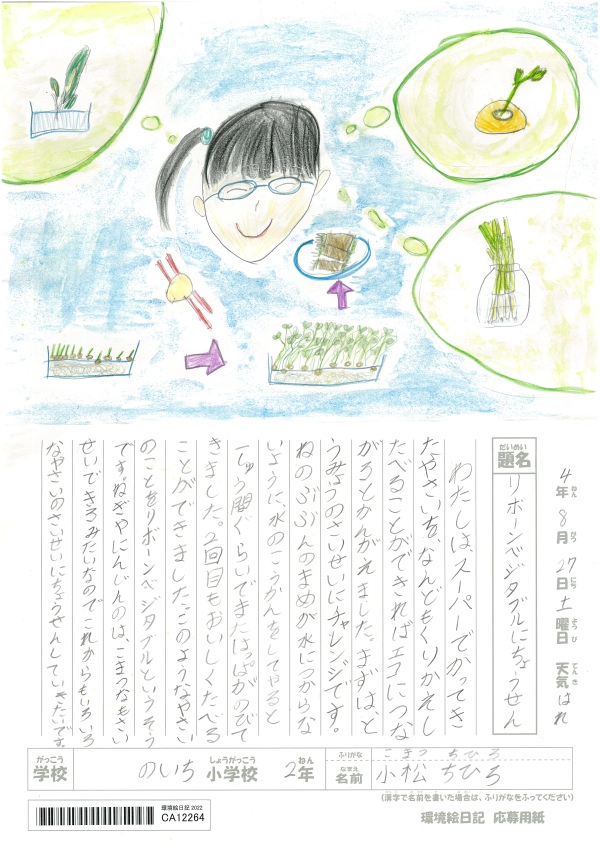 4年 8月 27日 土曜日 天気 はれ
題名 リボーンベジタブルにちょうせん
わたしは、スーパーでかってき
たやさいを、なんどもくりかえし
たべることができればエコにつな
がるとかんがえました。まずは、と
うみょうのさいせいにチャレンジです。
ねのぶぶんのまめが水につからな
いように、水のこうかんをしてやると
一しゅう間ぐらいでまたはっぱがのびて
きました。2回目もおいしくたべる
ことができました。このようなやさい
のことをリボーンベジタブルというそう
です。ねぎやにんじんのは、こまつなもさい
せいできるみたいなのでこれからもいろいろ
なやさいのさいせいにちょうせんしていきたいです。
学校 のいち 小学校 2年 名前 小松 ちひろ
こまつ ちひろ
(漢字で名前を書いた場合は、ふりがなをふってください)
環境絵日記 応募用紙
環境絵日記 2022
CA12264